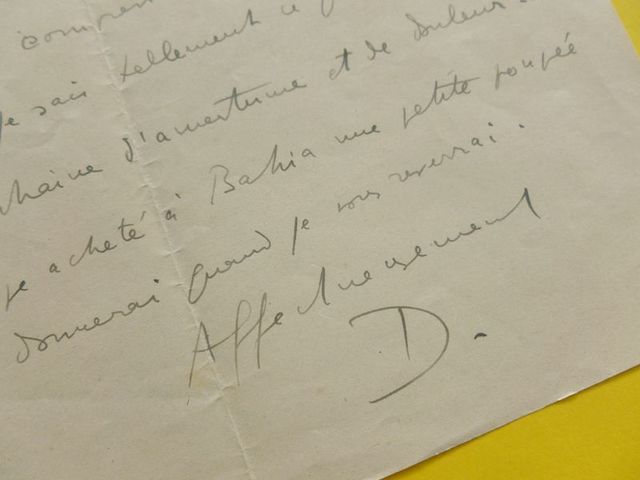 compren
Je sais tellement ce
haine d'amertume et de douleur
j'ai acheté à Bahia une petite poupée
donnerai quand je vous reverrai.
Affectueusement
D.